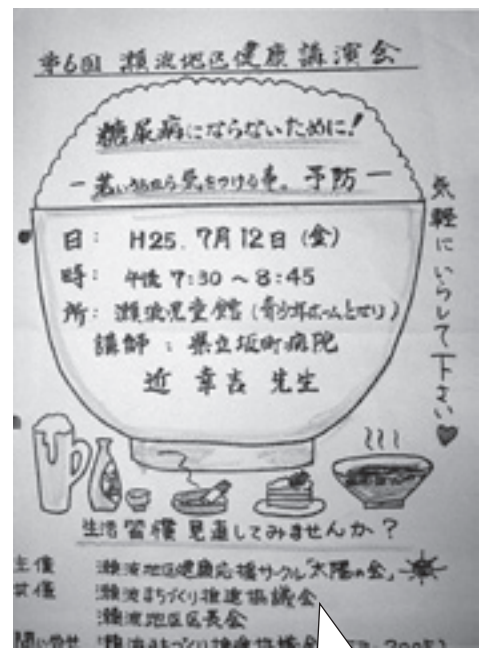 第6回 瀬波地区健康講演会
糖尿病にならないために!
－若いうちから気をつける事。予防－
日: H25. 7月12日(金)
時: 午後 7:30 ~ 8:45
所: 瀬波児童館(青少年ホームとなり)
講師: 県立坂町病院
近 幸吉 先生
気軽にいらして下さい♥
生活習慣見直してみませんか?
主催 瀬波地区健康応援サークル「太陽の会」
共催 瀬波まちづくり推進協議会
瀬波地区区長会
問い合せ 瀬波まちづくり推進協議会